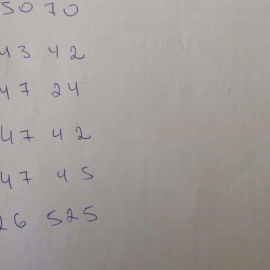 50 70
43 42
47 24
47 42
47 45
26 525